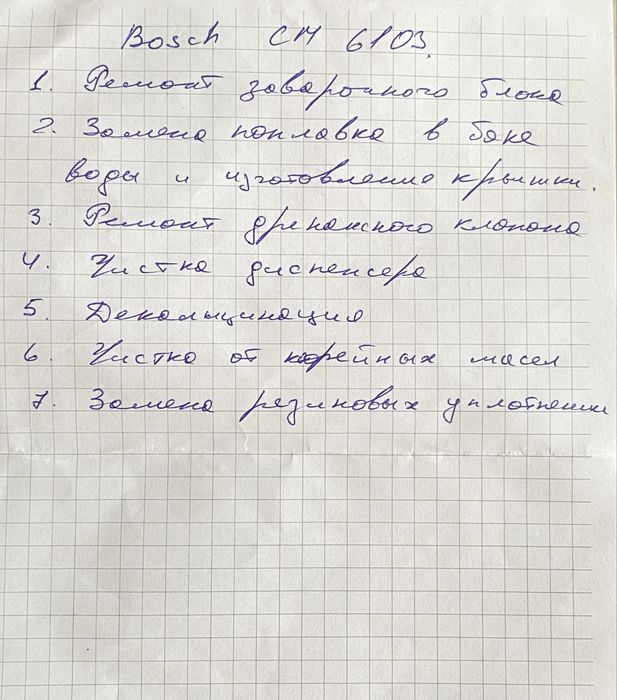 Bosch CM 6103.
1. Ремонт заварочного блока
2. Замена поплавка в баке
воды и изготовление крышки.
3. Ремонт дренажного клапана
4. Чистка диспенсера
5. Декальцинация
6. Чистка от кофейных масел
7. Замена резиновых уплотнении